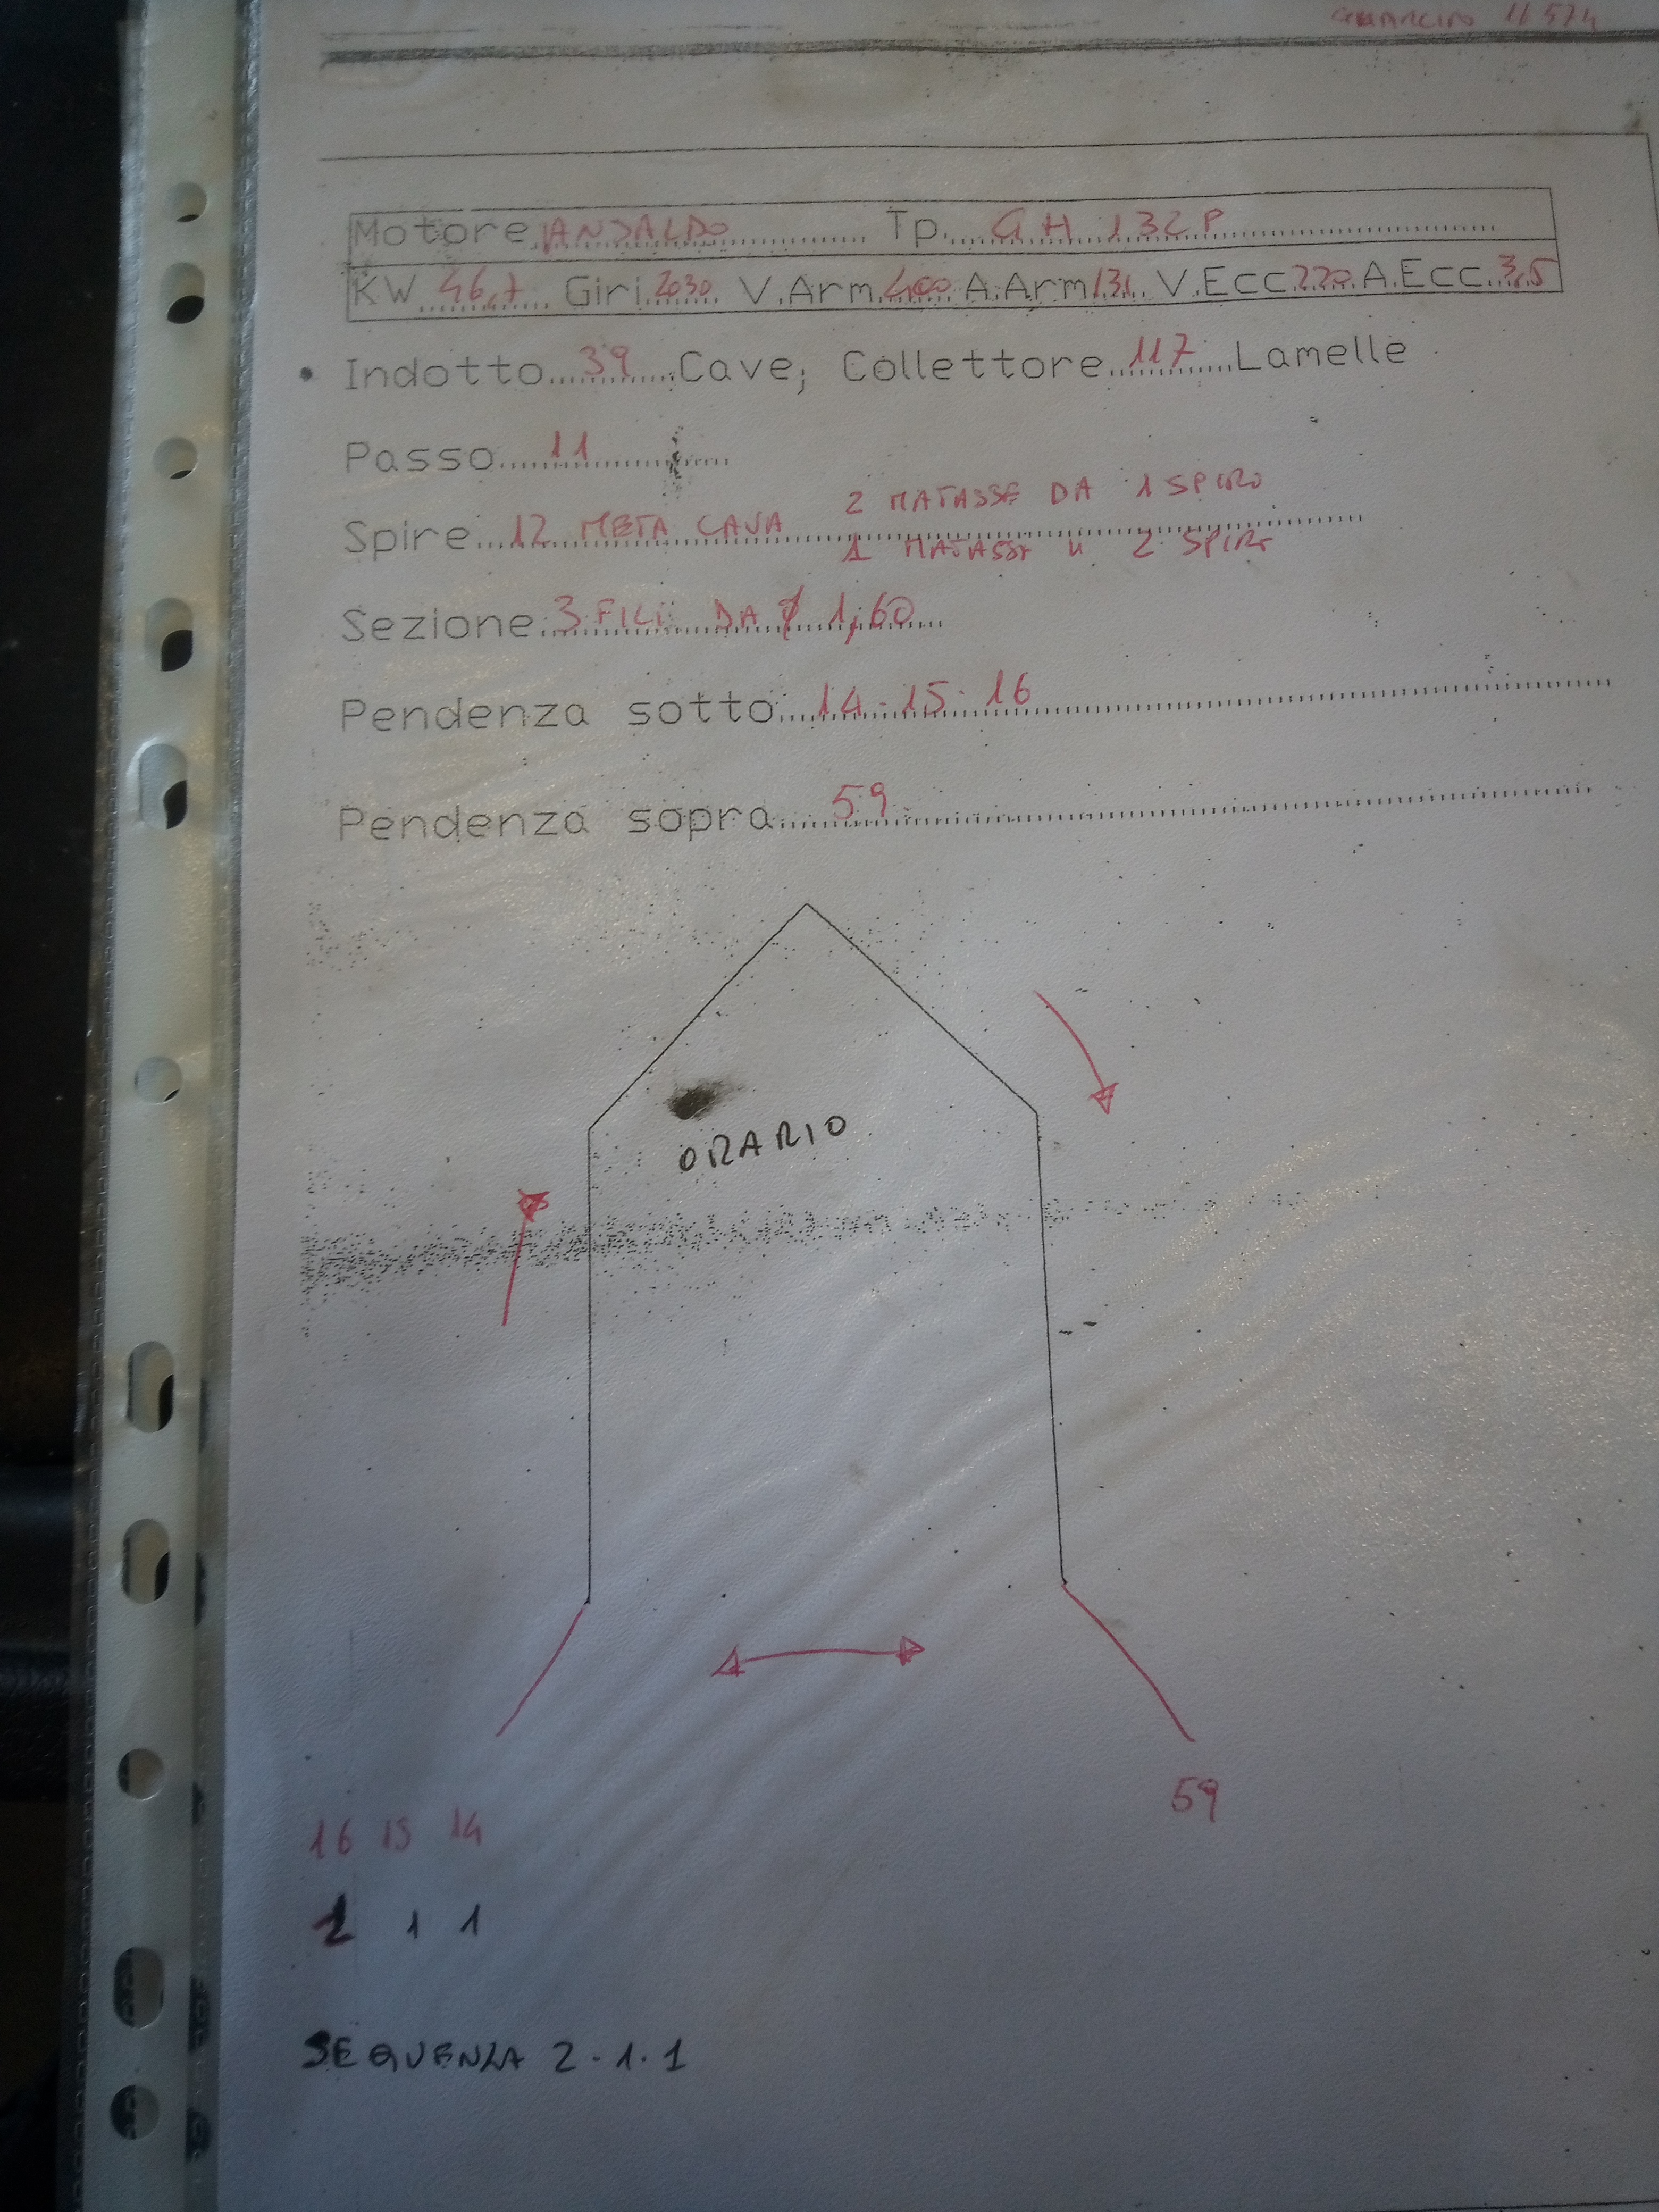 11574
Motore ANSALDO Tp. GH 132 P
KW 46,7 Giri 2030 V.Arm 400 A.Arm 131 V.Ecc 220 A.Ecc. 3,5
Indotto 39 Cave; Collettore 117 Lamelle
Passo 11
2 MATASSE DA 1 SPIRO
Spire 12 META CAVA
1 MATASSA " 2 SPIRE
Sezione 3 FILI DA 1,60
Pendenza sotto 14-15-16
Pendenza sopra 59
ORARIO
59
16 15 14
2 1 1
SEQUENZA 2-1-1